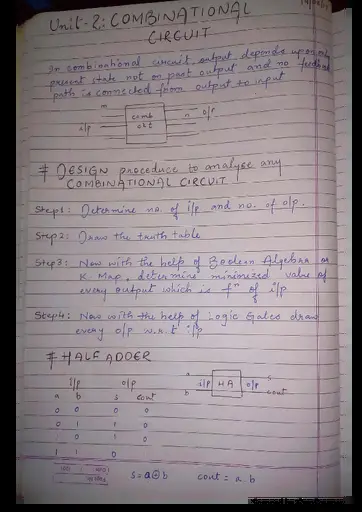 Unit-2: COMBINATIONAL
CIRCUIT
In combinational circuit, output depends upon only
present state not on past output and no feedback
path is connected from output to input
m
i/p
comb
ckt
n o/p
# DESIGN procedure to analyse any
COMBINATIONAL CIRCUIT
Step1: Determine no. of i/p and no. of o/p.
Step2: Draw the truth table
Step3: Now with the help of Boolean Algebra or
K-Map, determine minimized value of
every output which is fn of i/p
Step4: Now with the help of Logic Gates draw
every o/p w.r.t i/p
# HALF ADDER
i/p o/p
a b s cout
0 0 0 0
0 1 1 0
1 0 1 0
1 1 0
a
b
i/p HA o/p
s
cout
s = a⊕b cout = a.b